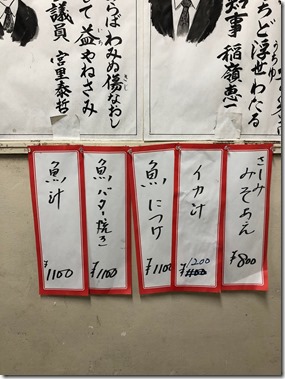 ちど浮世わたる
知事 稲嶺恵一
うばわみぬ傷なおし
て益やねさみ
議員 宮里泰哲
さしみ
みそあえ
¥800
イカ汁
1200
¥1100
魚につけ
¥1100
魚バター焼き
¥1100
魚汁
¥1100